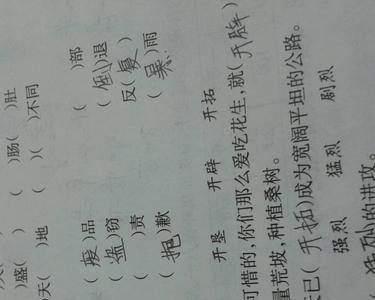 )盛( ) ( )肠( )肚
天( )地 ( )( )不同
(废)品 ( )部
(盗)窃 (倒)退
( )责 反(复)
(抱)歉 ( )雨
开垦 开辟 开拓
可惜的,你们那么爱吃花生,就(开辟)
量荒坡,种植桑树。
已(开拓)成为宽阔平坦的公路。
强烈 猛烈 剧烈
猛烈的进攻。